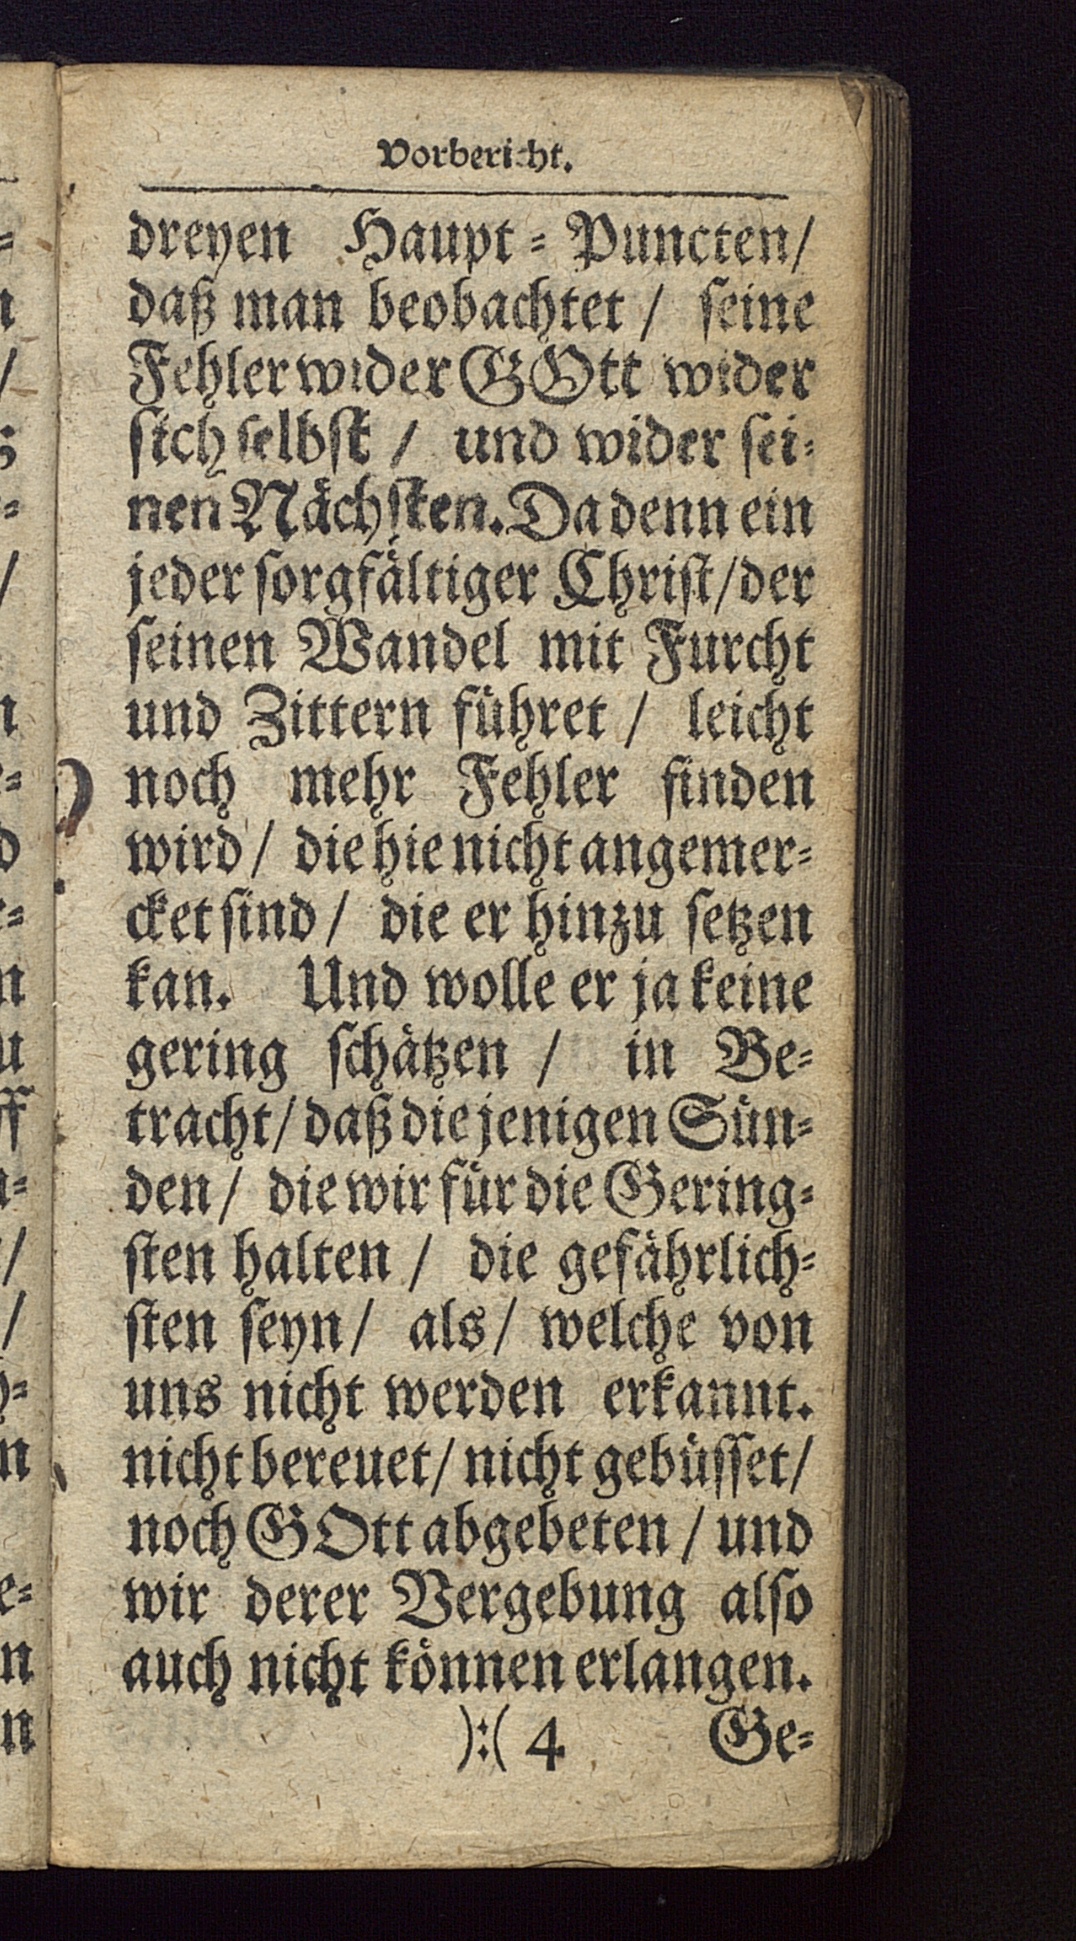 Vorbericht.
dreyen Haupt-Puncten/
daß man beobachtet / seine
Fehler wider GOtt wider
sich selbst / und wider sei-
nen Nächsten. Da denn ein
jeder sorgfältiger Christ/der
seinen Wandel mit Furcht
und Zittern führet / leicht
noch mehr Fehler finden
wird / die hie nicht angemer-
cket sind / die er hinzu setzen
kan. Und wolle er ja keine
gering schätzen / in Be-
tracht/daß diejenigen Sün-
den / die wir für die Gering-
sten halten / die gefährlich-
sten seyn / als / welche von
uns nicht werden erkannt.
nicht bereuet/nicht gebüsset/
noch GOtt abgebeten / und
wir derer Vergebung also
auch nicht können erlangen.
):( 4 Ge-